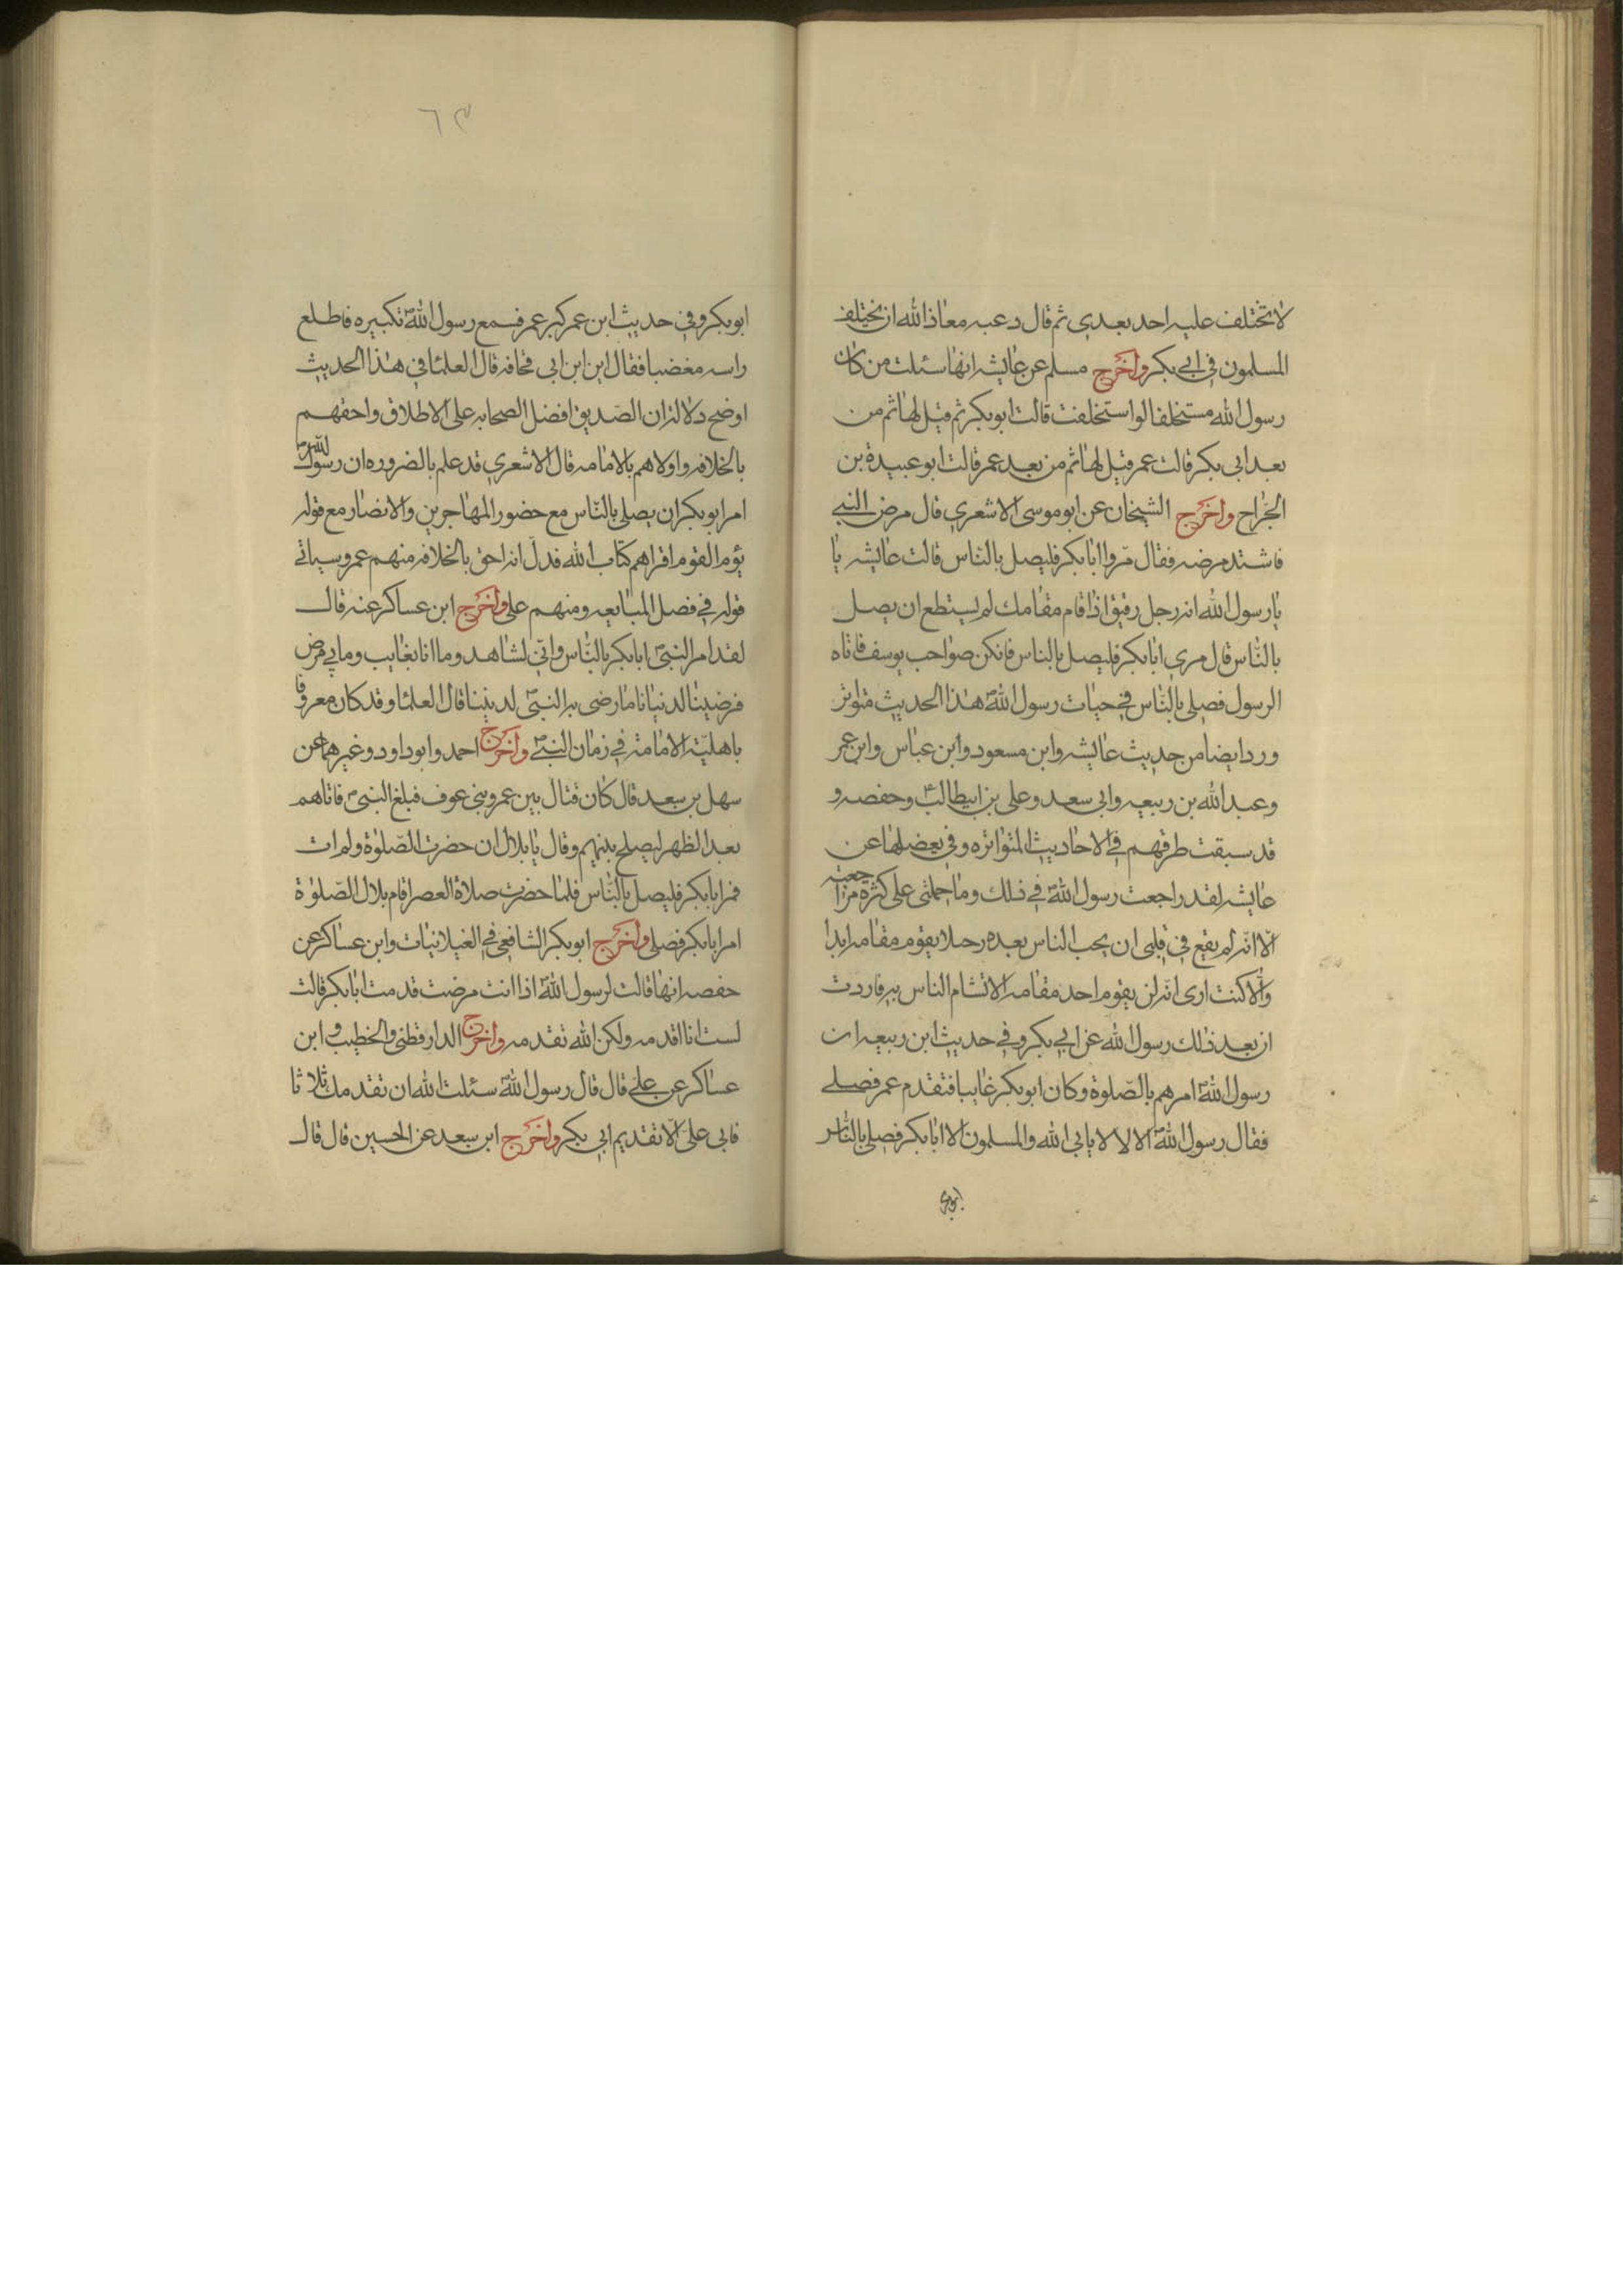 لا تختلف عليه احد بعدى ثم قال دعيه معاذ الله ان يختلف
المسلمون فى ابي بكر واخرج مسلم عن عايشه انها سئلت من كان
رسول الله مستخلفا لو استخلفت قالت ابوبكر ثم قيل لها ثم من
بعد ابى بكر قالت عمر قيل لها ثم من بعد عمر قالت ابو عبيدة بن
الجراح واخرج الشيخان عن ابو موسى الاشعري قال مرض النبي
فاشتد مرضه فقال مروا ابابكر فليصل بالناس قالت عايشه يا
يا رسول الله انه رجل رقيق اذا قام مقامك لم يستطع ان يصل
بالناس قال مري ابابكر فليصل بالناس فانكن صواحب يوسف فاتاه
الرسول فصلى بالناس في حيات رسول اللهص هذا الحديث متواتر
ورد ايضا من حديث عايشه وابن مسعود وابن عباس وابن عمر
وعبد الله بن ربيعه وابى سعد وعلى بن ابيطالب وحفصه و
قد سبقت طرقهم في الاحاديث المتواتره وفى بعضها عن
عايشه لقد راجعت رسول اللهص في ذلك وما حملنى على كثرة مراجعته
الا انه لم يقع في قلبى ان يحب الناس بعده رجلا يقوم مقامه ابدا
والا كنت ارى انه لن يقوم احد مقامه الا تشام الناس به فاردت
ان بعد ذلك رسول الله عن ابي بكر وفي حديث ابن ربيعه ان
رسول اللهص امرهم بالصلوة وكان ابوبكر غايبا فتقدم عمر فصلى
فقال رسول اللهص لا لا لا يابى الله والمسلمون الا ابابكر فصلى بالناس
ابوبكر
٦٣
ابوبكر وفى حديث ابن عمر كبر عمر فسمع رسول اللهص تكبيره فاطلع
راسه مغضبا فقال اين ابن ابى قحافه قال العلما فى هذا الحديث
اوضح دلالة ان الصديق افضل الصحابه على الاطلاق واحقهم
بالخلافه واولاهم بالامامه قال الاشعرى قد علم بالضروره ان رسول اللهص
امر ابوبكر ان يصلى بالناس مع حضور المهاجرين والانصار مع قوله
يؤم القوم اقراهم كتاب الله فدل انه احق بالخلافه منهم عمر وسياتى
قوله في فصل المبايعه ومنهم على واخرج ابن عساكر عنه قال
لقد امر النبىص ابابكر بالناس وانى لشاهد وما انا بغايب وما بي مرض
فرضينا لدنيانا ما رضى به النبىص لديننا قال العلما وقد كان معروفا
باهلية الامامة في زمان النبىص واخرج احمد وابو داود وغيرهما عن
سهل بن سعد قال كان قتال بين عمرو بنى عوف فبلغ النبىص فاتاهم
بعد الظهر ليصلح بينهم وقال يا بلال ان حضرت الصلوة ولم ات
فمر ابابكر فليصل بالناس فلما حضرت صلاة العصر اقام بلال الصلوة
امر ابابكر فصلى واخرج ابوبكر الشافعي في الغيلانيات وابن عساكر عن
حفصه انها قالت لرسول اللهص اذا انت مرضت قدمت ابابكر قالت
لست انا اقدمه ولكن الله تقدمه واخرج الدارقطنى والخطيب و ابن
عساكر عن على قال قال رسول اللهص سئلت الله ان تقدمك ثلاثا
فابى على الا تقديم ابى بكر واخرج ابن سعد عن الحسين قال قال